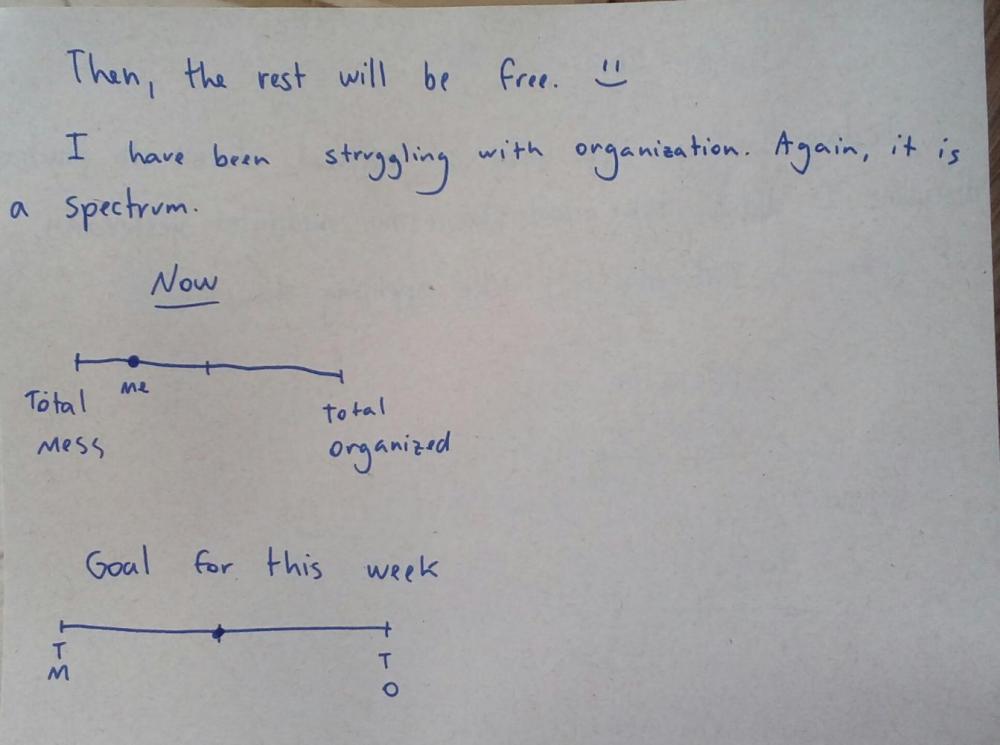 Then, the rest will be free. :)
I have been struggling with organization. Again, it is
a spectrum.
Now
me
Total
mess
Total
organized
Goal for this week
T
M
T
O